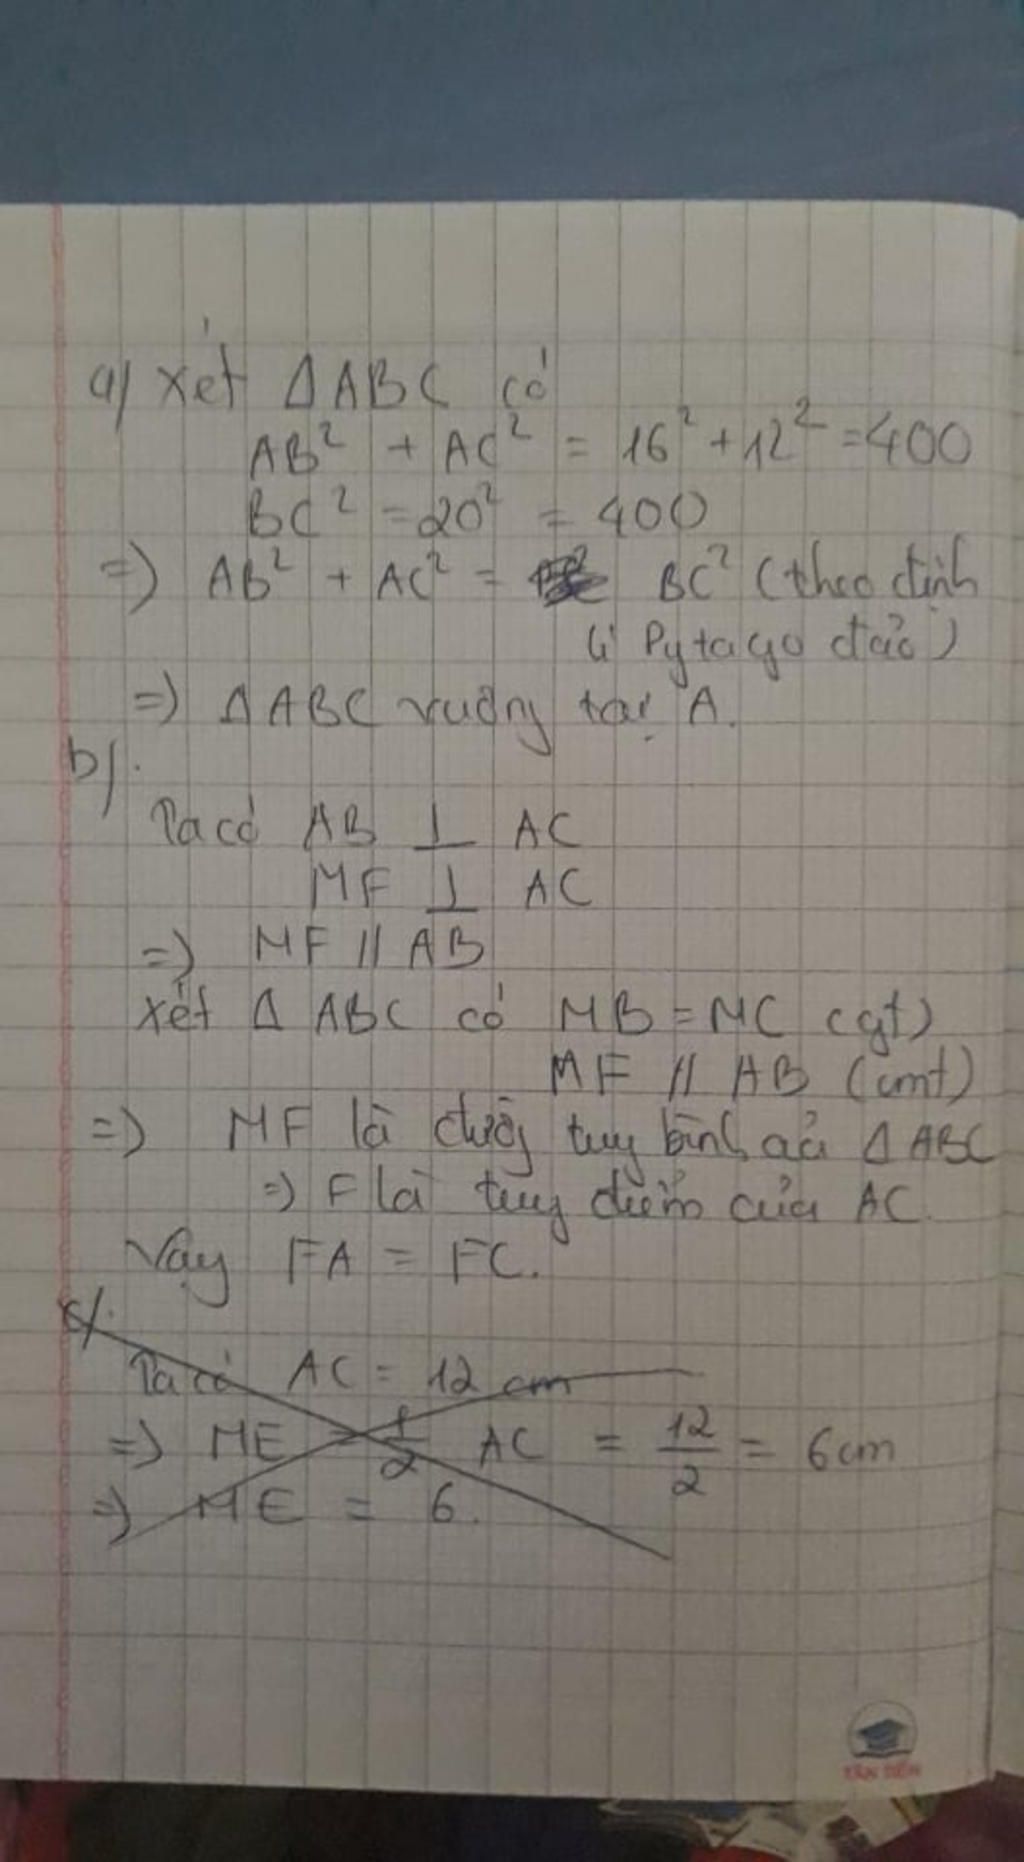 a) Xét Δ ABC có
AB² + AC² = 16² + 12² = 400
BC² = 20² = 400
=> AB² + AC² = BC² (theo định
lí Pytago đảo)
=> Δ ABC vuông tại A.
b).
Ta có AB ⊥ AC
MF ⊥ AC
=> MF // AB
Xét Δ ABC có MB = MC (gt)
MF // AB (cmt)
=> MF là đường trung bình của Δ ABC
=> F là trung điểm của AC.
Vậy FA = FC.
c).
Ta có AC = 12 cm
=> ME = 1/2 AC = 12/2 = 6cm
=> ME = 6.
TÂN TIẾN